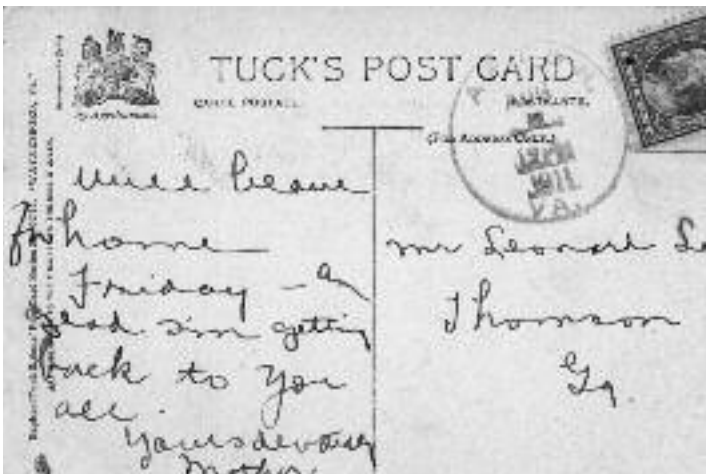 TUCK'S POST CARD
CARTE POSTALE.
(FOR ADDRESS ONLY.)
1911
VA.
Will leave
for home
Friday -
glad I'm getting
back to you
all.
Yours devotedly
Mother
Mr Leonard
Thomson
Ga